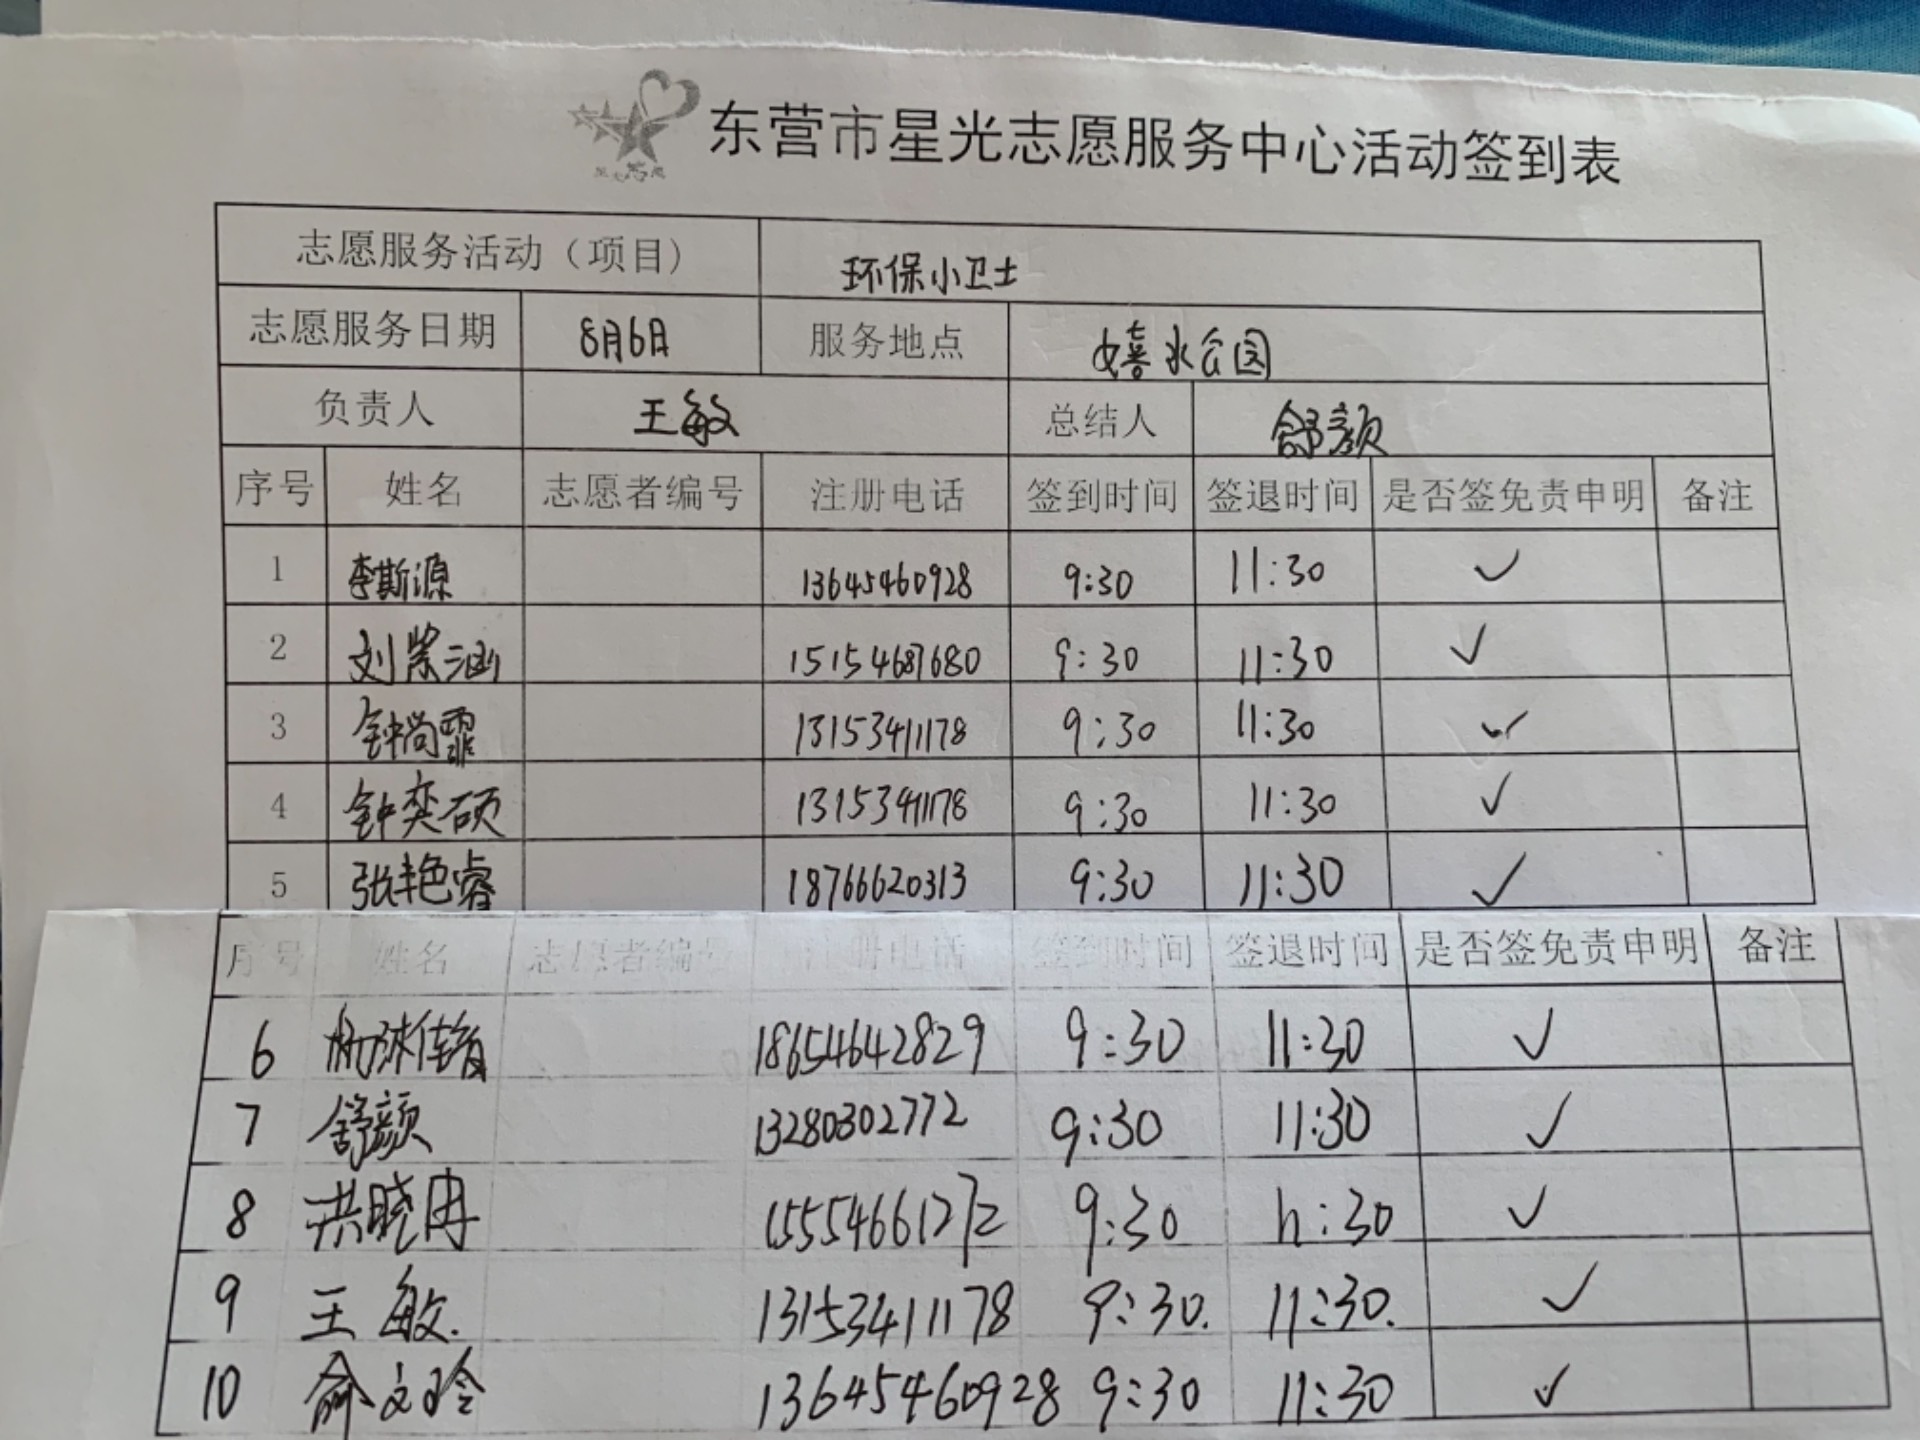 东营市星光志愿服务中心活动签到表
志愿服务活动（项目） 环保小卫士
志愿服务日期 8月6日 服务地点 嬉水公园
负责人 王敏 总结人 舒颜
序号 姓名 志愿者编号 注册电话 签到时间 签退时间 是否签免责申明 备注
1 李斯源 13645460928 9:30 11:30 ✓
2 刘紫涵 15154687680 9:30 11:30 ✓
3 钟尚霏 13153411178 9:30 11:30 ✓
4 钟奕硕 13153411178 9:30 11:30 ✓
5 张艳睿 18766620313 9:30 11:30 ✓
序号 姓名 志愿者编号 注册电话 签到时间 签退时间 是否签免责申明 备注
6 18654642829 9:30 11:30 ✓
7 舒颜 13280302772 9:30 11:30 ✓
8 洪晓冉 15554661272 9:30 11:30 ✓
9 王敏. 13153411178 9:30. 11:30. ✓
10 俞文玲 13645460928 9:30 11:30 ✓